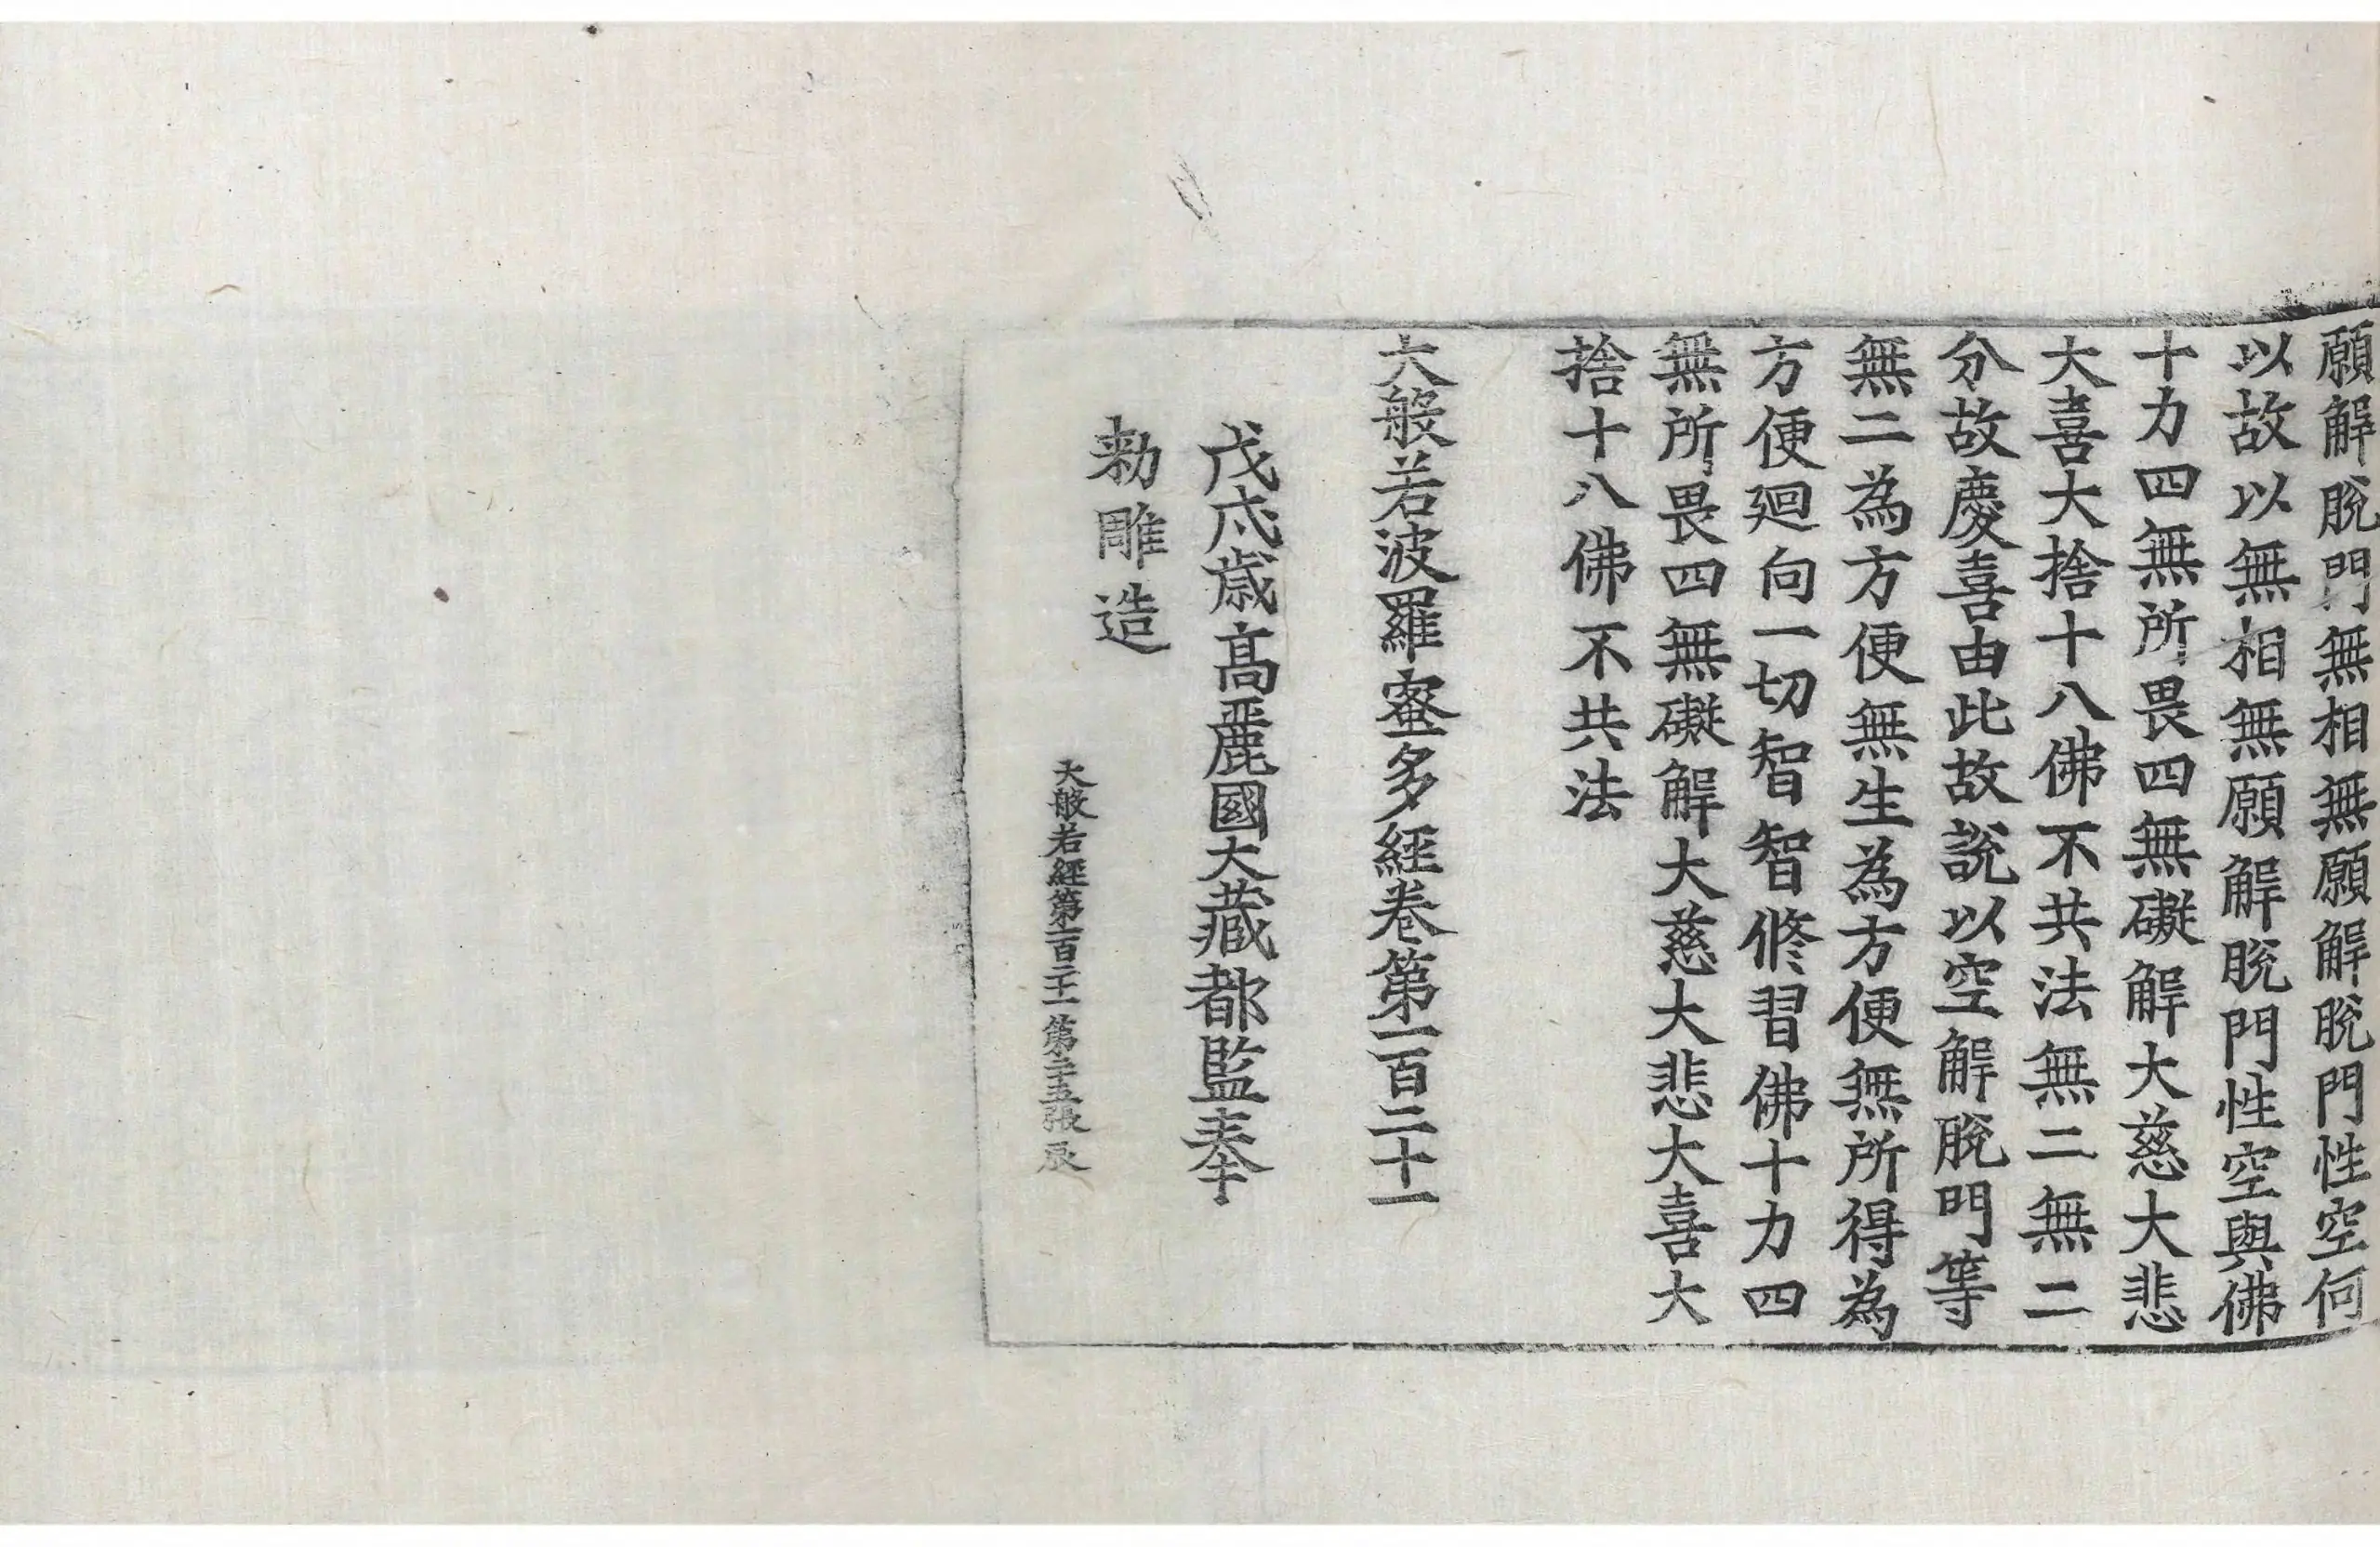 願解脫門無相無願解脫門性空何
以故以無相無願解脫門性空與佛
十力四無所畏四無礙解大慈大悲
大喜大捨十八佛不共法無二無二
分故慶喜由此故說以空解脫門等
無二為方便無生為方便無所得為
方便迴向一切智智修習佛十力四
無所畏四無礙解大慈大悲大喜大
捨十八佛不共法
大般若波羅蜜多經卷第一百二十一
戊戌歲高麗國大藏都監奉
勅雕造
大般若經第一百二十一 第二十五張 辰